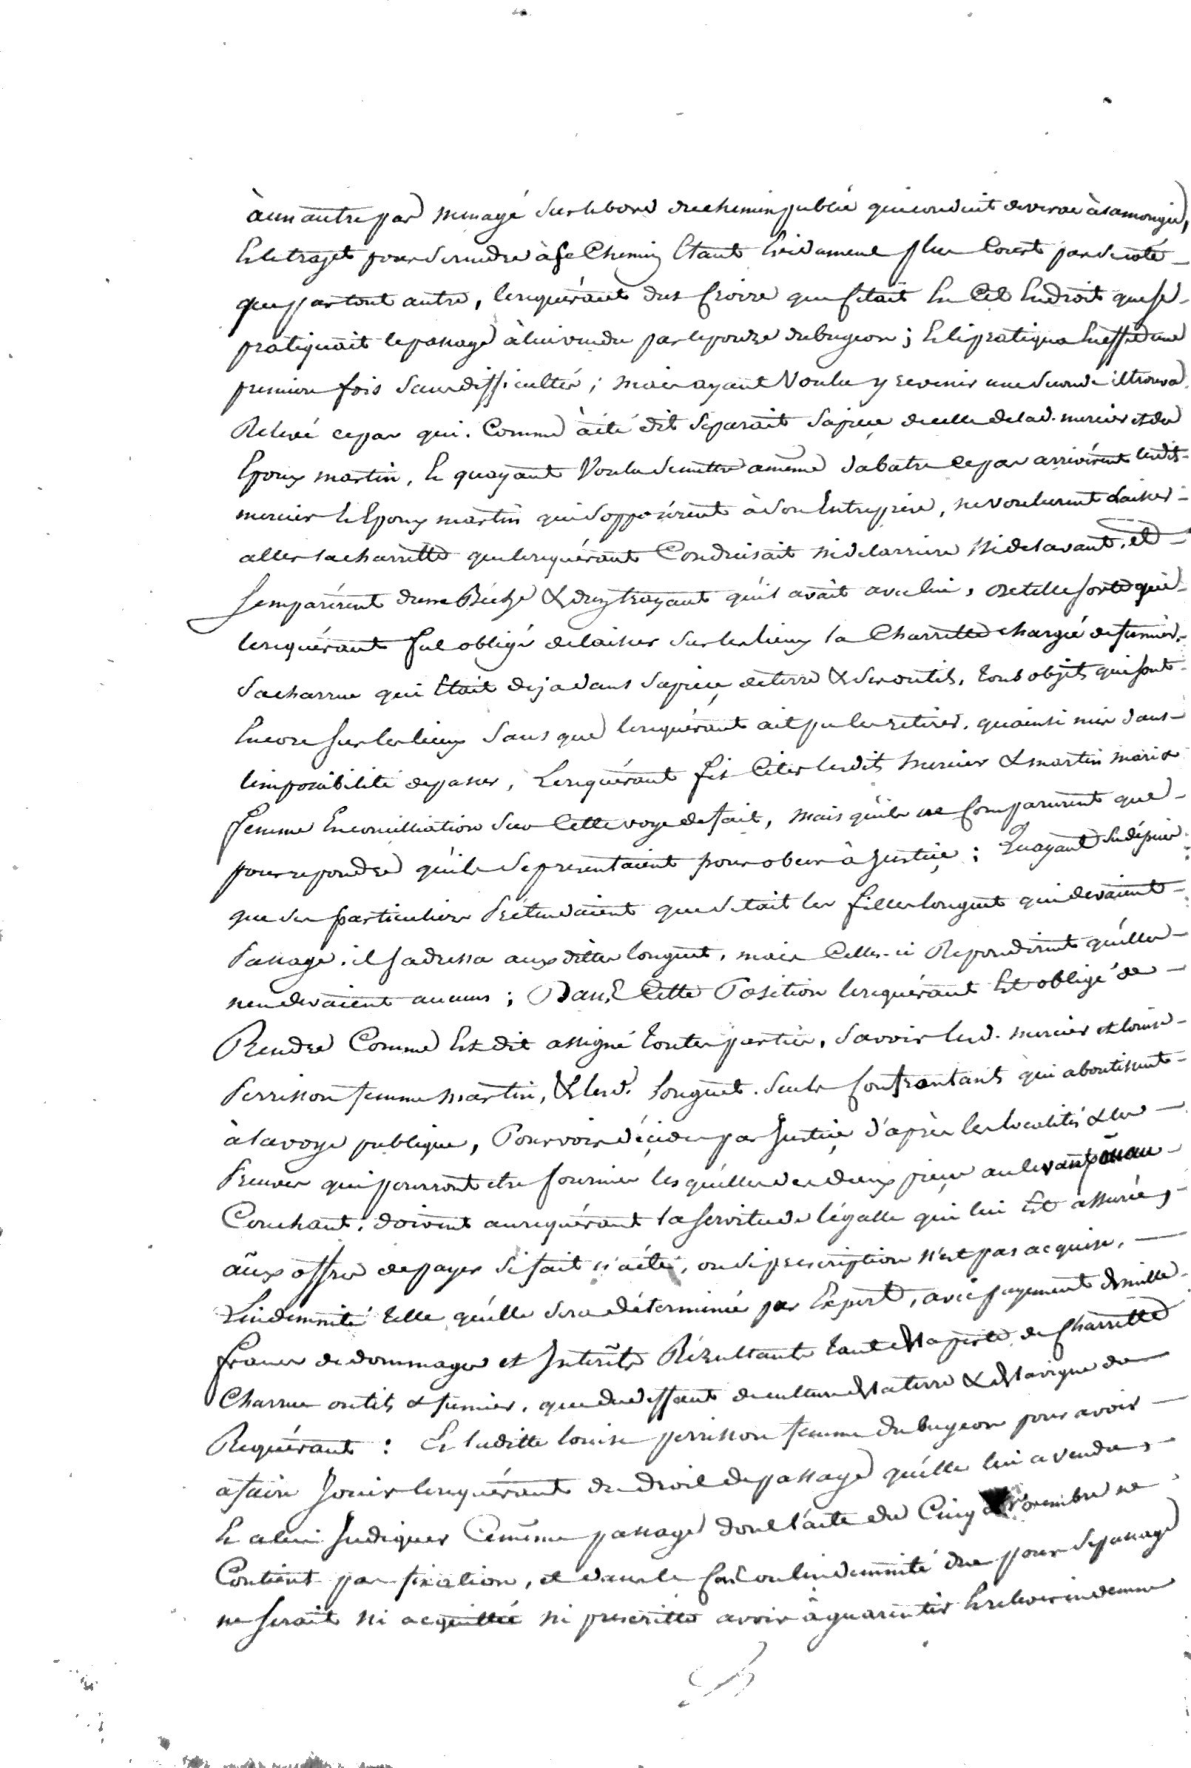 à un autre pas menagé sur le bord du chemin public qui conduit de verac à la mongie,
Et le trajet pour se rendre à ce Chemin Etant Evidament plus Court par ce coté
que par tout autre, le requérant dut croire que c'etait En Cet Endroit que se
pratiquait le passage à lui vendu par lepouze dubugeon ; Et le pratiqua En effet une
premiere fois sans difficultés ; mais ayant Voulu y revenir une seconde il trouva
Relevé ce pas qui. Comme à été dit Separait Sa piece de celle de lad. mercier et des
Epoux martin, Et quayant Voulu se mettre a même dabatre ce pas arrivérent lesdits
mercier Et Epoux martin qui s'opposérent à son Entreprise, ne voulurent laisser
aller la charrette que le requérant Conduisait ni de larriere Ni de lavant, et
s'emparérent dune Bêche & dun trayant qu'il avait avec lui, de telle sorte que
le requérant fut obligé de laisser sur les lieux la Charrette chargée de fumier,
sa charrue qui Etait deja dans sa piece de terre & ses outils, tous objets qui sont
Encore sur les lieux Sans que le requérant ait pu les retirer. quainsi mis dans
limpossibilité de passer, Le requérant fit Citer lesdits mercier & martin mari &
femme En conciliation sur Cette voye de fait, mais qu'ils ne Comparurent que
pour repondre qu'ils se presentaient pour obeir à Justice ; Quayant su depuis
que des particuliers Prétendaient que c'etait les filles longuet qui devaient
Passage, il s'adressa aux dittes longuet, mais Celles-ci Repondirent qu'elles
n'en devaient aucuns ; Dans Cette Position le requérant Est obligé de
Rendre Comme Est dit assigné toutes parties, Savoir lesd. mercier et louise
Perrisson femme martin, & lesd. longuet. seuls Confrontants qui aboutissent
à la voye publique, Pour voir décider par Justice d'après les localités & les
Preuves qui pourront être fournies lesquelles des deux pieces au levant ou au
Couchant, doivent au requérant la servitude légalle qui lui Est assurée,
aux offres de payer si fait n'a été, ou si prescription n'est pas acquise,
L'indemnité telle quélle sera déterminée par Expert, avec payement de mille
francs de dommages et Interêts Résultants tant de la perte de Charrette
Charrue outils & fumier, que du deffaut de culture de la terre & de la vigne du
Requérant : Et laditte louise perrisson femme dubugeon pour avoir
à faire Jouir le requérant du droit de passage quélle lui a vendu,
Et a lui Indiquer Ce même passage dont l'acte du Cinq Novembre ne
Contient pas fixation, et dans le Cas ou lindemnité due pour le passage
ne serait ni acquittée ni prescritte avoir à guarentir Et relever indemne